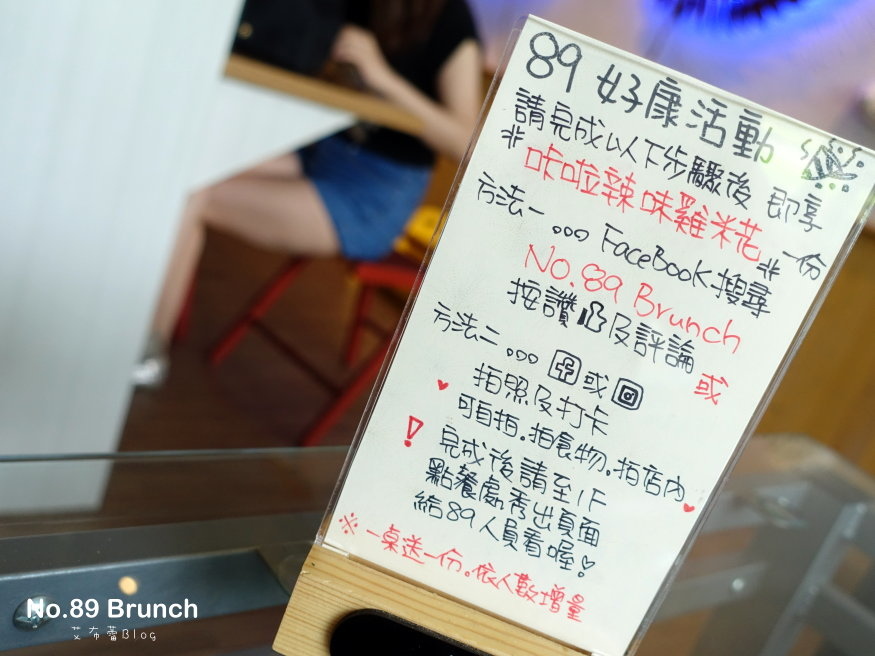 89 好康活動
請完成以下步驟後 即享
*咔啦辣味雞米花* 一份
方法一 ... FaceBook搜尋
No.89 Brunch
按讚及評論 或
方法二 ... 或
拍照及打卡
可自拍.拍食物.拍店內
! 完成後請至1F
點餐處秀出頁面
給89人員看喔!
※一桌送一份。依人數增量
No.89 Brunch
艾布蕾Blog